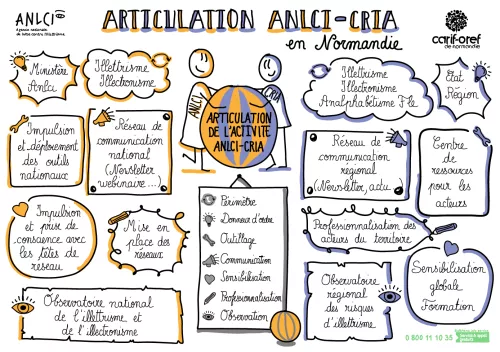 ANLCI
Agence nationale
de lutte contre l'illettrisme
ARTICULATION ANLCI-CRIA
en Normandie
carif-oref
de normandie
Ministère
Anlci
Illettrisme
Illectronisme
ANLCI
CRIA
ARTICULATION
DE L'ACTIVITÉ
ANLCI-CRIA
Illettrisme
Illectronisme
Analphabétisme Fle
État
Région
Impulsion
et déploiement
des outils
nationaux
Réseau de
communication
national
(Newsletter,
webinaire...)
Réseau de
communication
régional
(Newsletter, actu...)
Centre
de
ressources
pour les
acteurs
Impulsion
et prise de
conscience avec
les têtes de
réseau
Mise en
place des
réseaux
Périmètre
Donneur d'ordre
Outillage
Communication
Sensibilisation
Professionnalisation
Observation
Professionnalisation des
acteurs du territoire
Sensibilisation
globale
Formation
Observatoire national
de l'illettrisme et
de l'illectronisme
Observatoire
régional
des risques
d'illettrisme
0 800 11 10 35